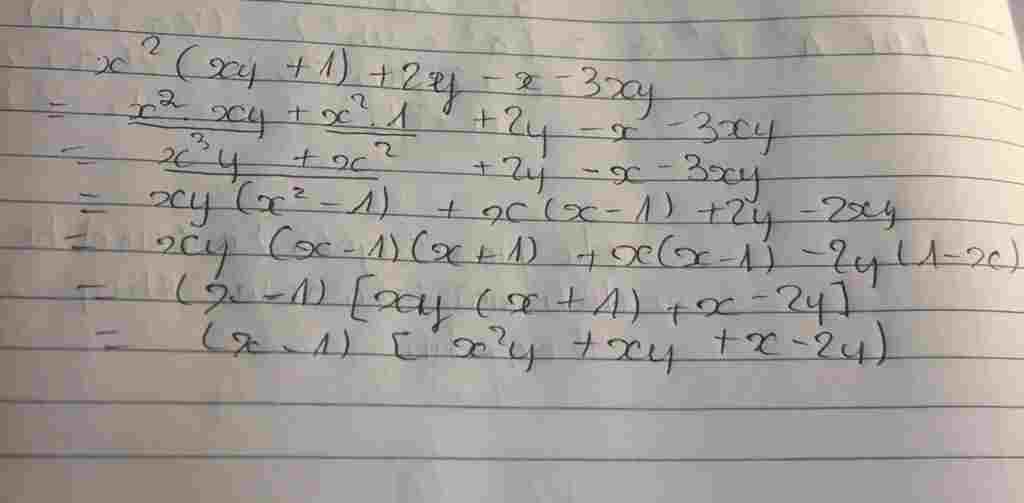 x² (xy + 1) + 2y - x - 3xy
= x² . xy + x² . 1 + 2y - x - 3xy
= x³y + x² + 2y - x - 3xy
= xy (x² - 1) + x (x - 1) + 2y - 2xy
= xy (x - 1) (x + 1) + x(x - 1) - 2y (1 - x)
= (x - 1) [xy (x + 1) + x - 2y]
= (x - 1) [ x²y + xy + x - 2y)